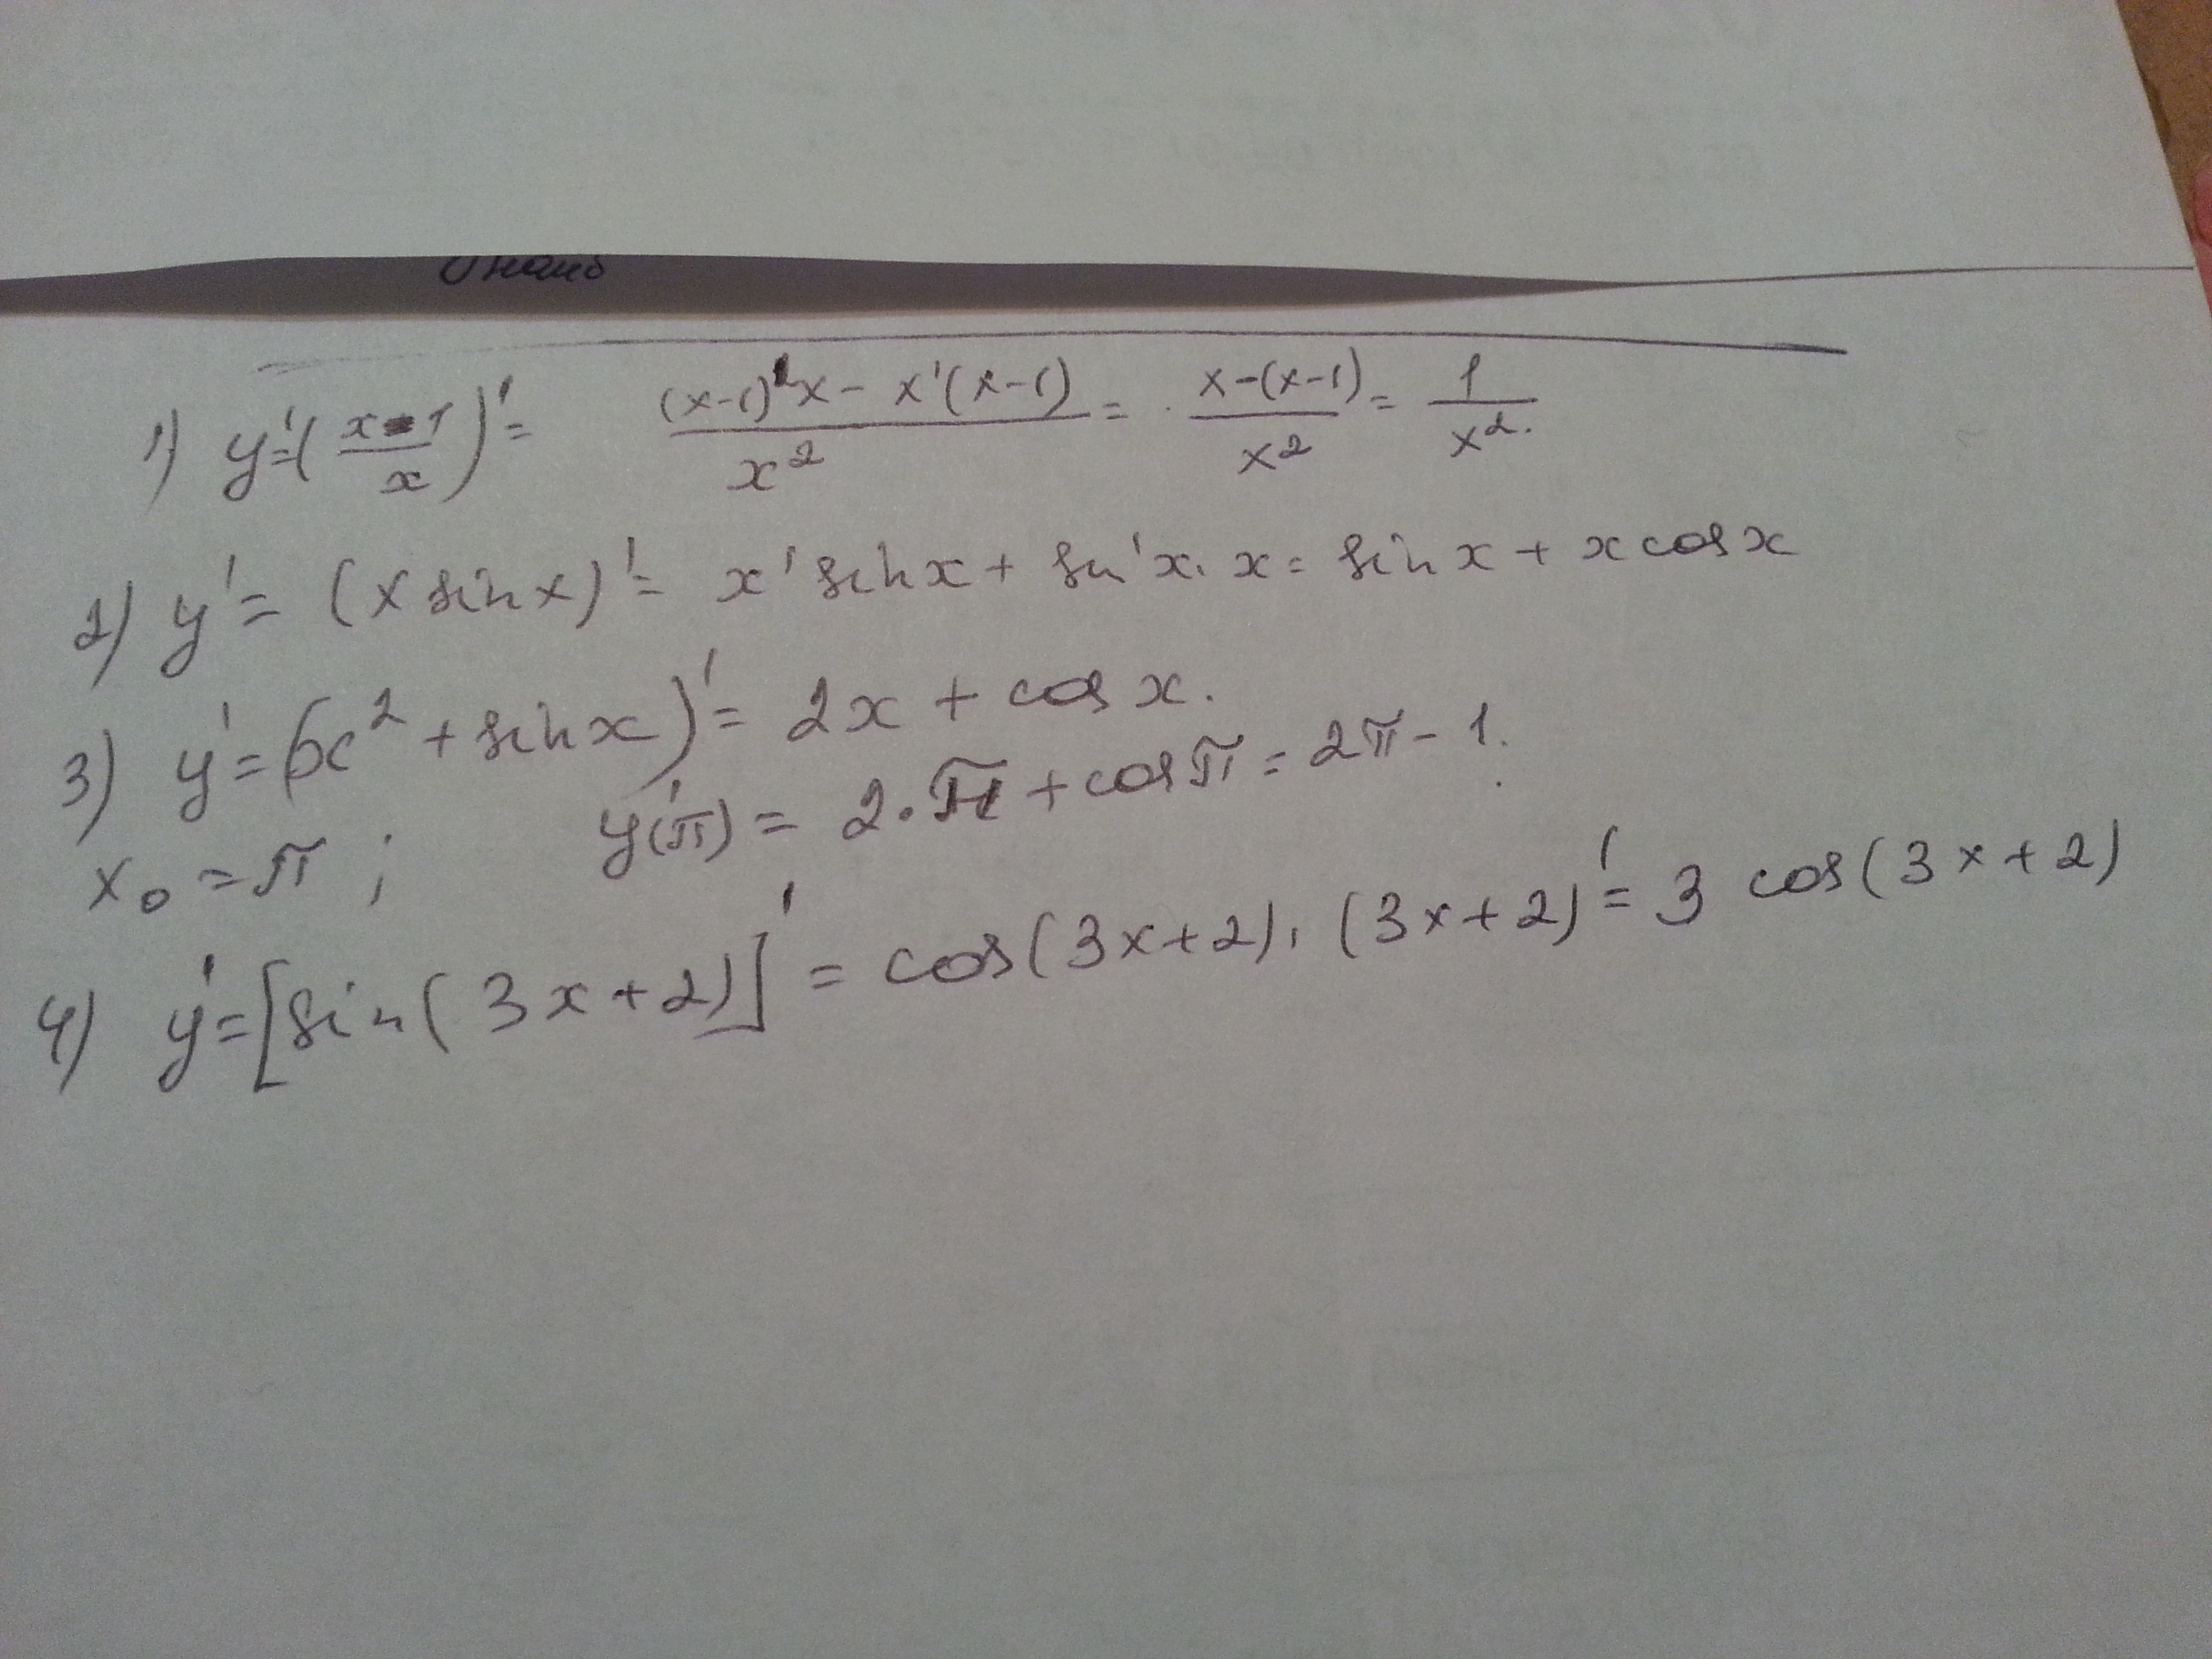 1) y'=(x-1/x)' = (x-1)'x - x'(x-1)/x² = x-(x-1)/x² = 1/x².
2) y' = (x sin x)' = x' sin x + sin'x · x = sin x + x cos x
3) y' = (x² + sin x)' = 2x + cos x.
x₀ = π ; y'(π) = 2·π + cos π = 2π - 1.
4) y' = [sin(3x+2)]' = cos(3x+2) · (3x+2)' = 3 cos(3x+2)